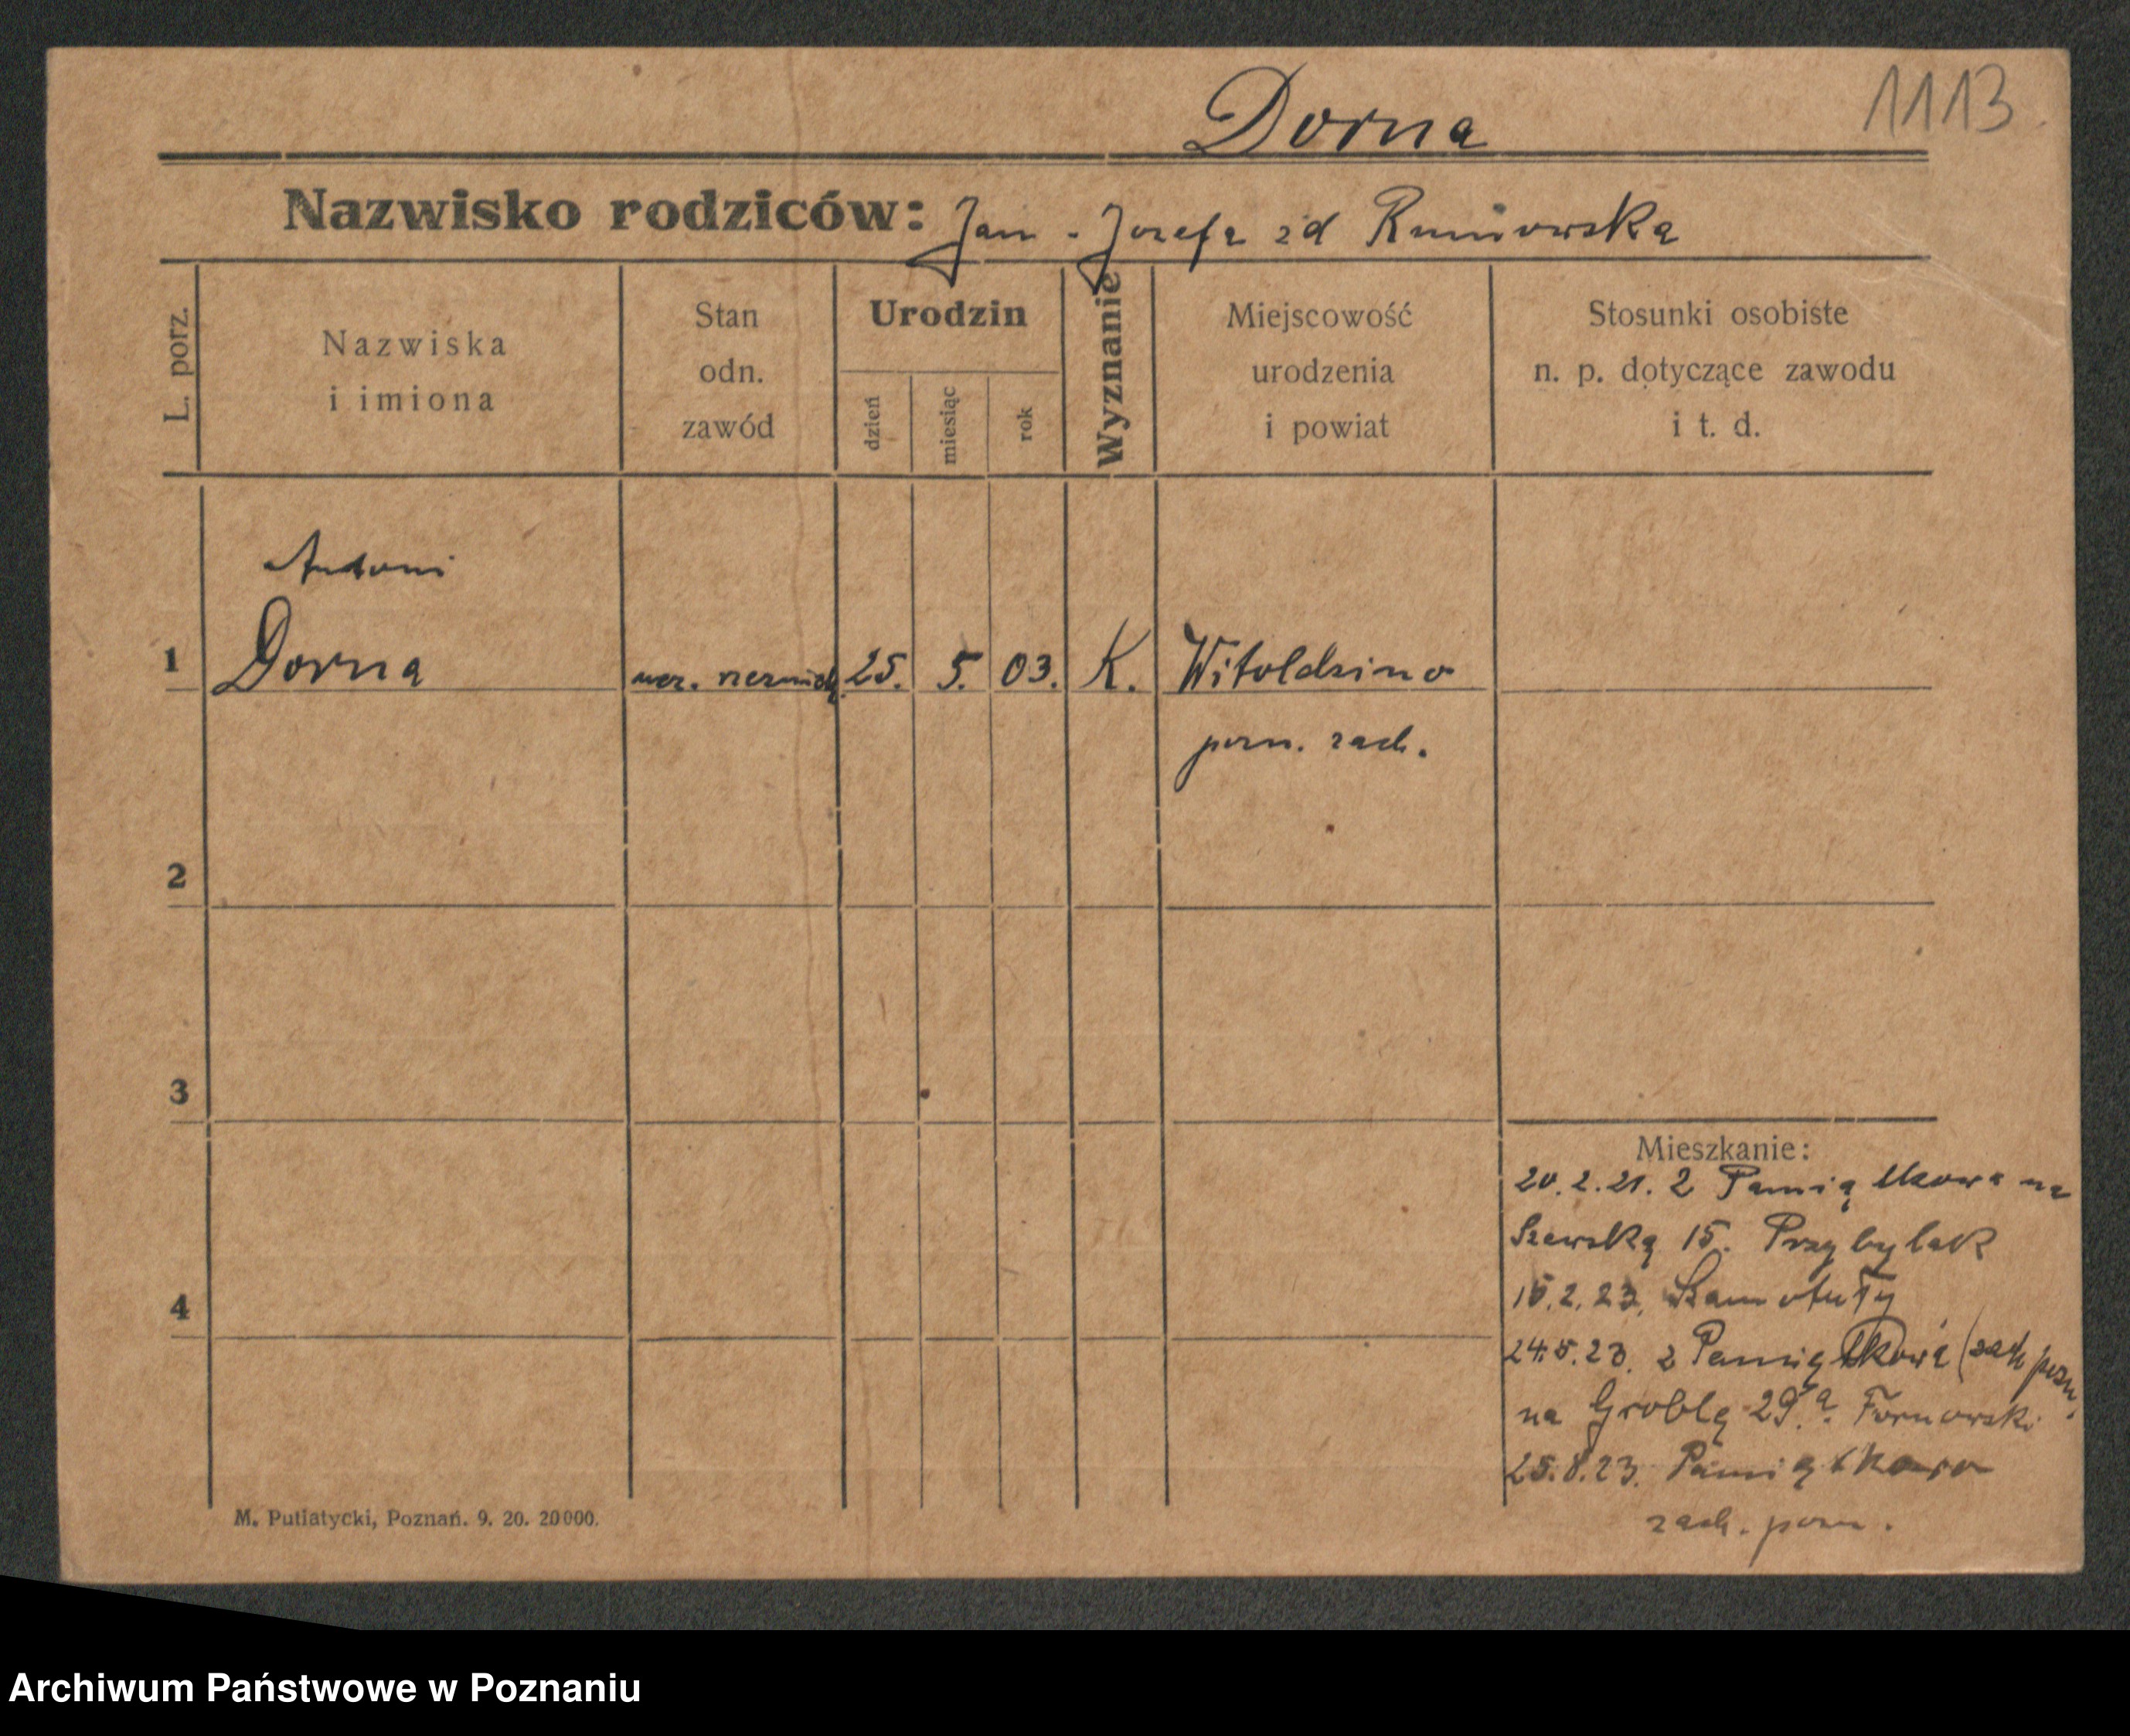 Dorna
1113
Nazwisko rodziców: Jan - Jozefa zd
L. porz.
Nazwiska
i imiona
Stan
odn.
zawód
Urodzin
dzień
miesiąc
rok
Wyznanie
Miejscowość
urodzenia
i powiat
Stosunki osobiste
n. p. dotyczące zawodu
i t. d.
Antoni
1 Dorna ucz. 25. 5. 03. K. Witoldzino
pozn. zach.
2
3
Mieszkanie:
20.2.21. z Pamiątkowa na
Szewską 15. Przybylak
4
15.2.23. Szamotuły
24.5.23. z Pamiątkowa (zach pozn.
na Groblę 29a.
25.8.23. Pamiątkowo
zach. pozn.
M. Putiatycki, Poznań. 9. 20. 20000.
Archiwum Państwowe w Poznaniu